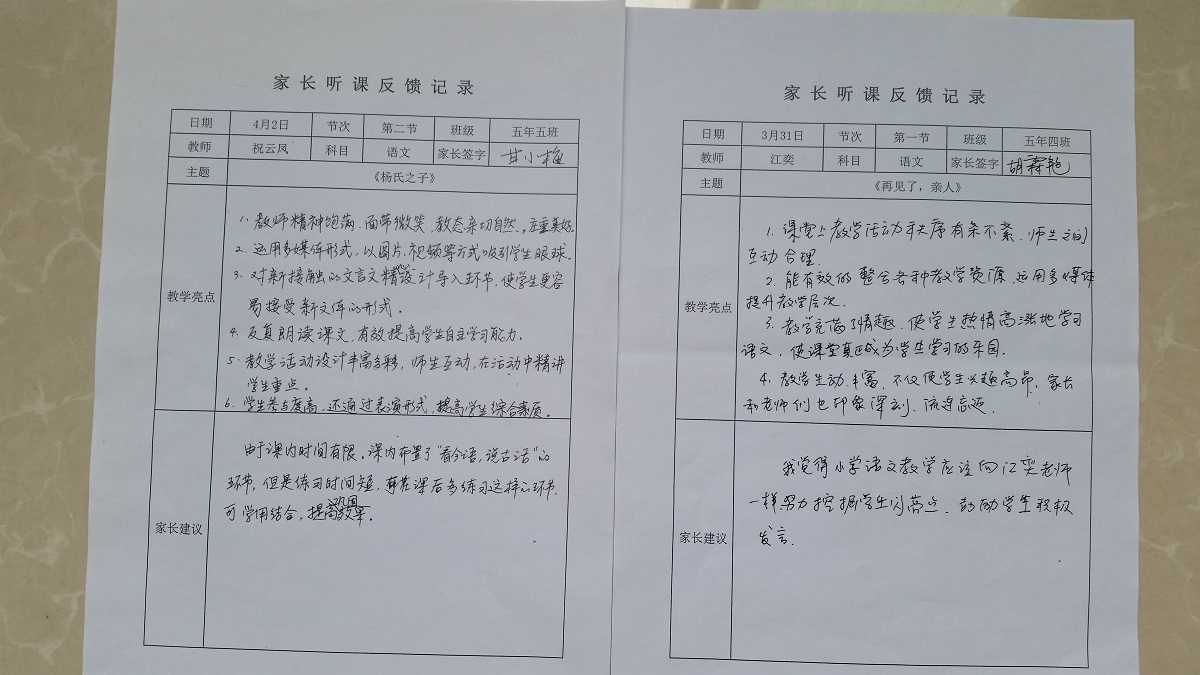 家长听课反馈记录
日期 4月2日 节次 第二节 班级 五年五班
教师 祝云凤 科目 语文 家长签字 甘小梅
主题 《杨氏之子》
教学亮点
1. 教师精神饱满,面带微笑,教态亲切自然,庄重美好。
2. 运用多媒体形式,以图片、视频等方式吸引学生眼球。
3. 对新接触的文言文精心设计导入环节,使学生更容
易接受新文体的形式。
4. 反复朗读课文,有效提高学生自主学习能力。
5. 教学活动设计丰富多彩,师生互动,在活动中精讲
学生重点。
6. 学生参与度高,还通过表演形式,提高学生综合素质。
家长建议
由于课内时间有限,课内布置了“看今语,说古话”的
环节,但是练习时间短,
课后多练习这样的环节,
可学用结合,提高效果。
巩固
家长听课反馈记录
日期 3月31日 节次 第一节 班级 五年四班
教师 江奕 科目 语文 家长签字 胡霖艳
主题 《再见了,亲人》
教学亮点
1. 课堂上教学活动开展有条不紊,师生之间
互动合理.
2. 能有效的整合各种教学资源,运用多媒体
提升教学层次.
3. 教学充满了情趣,使学生热情高涨地学习
语文,使课堂真正成为学生学习的乐园.
4. 教学生动、丰富,不仅使学生兴趣高昂,家长
和老师们也印象深刻,流连忘返.
家长建议
我觉得小学语文教学应该向江奕老师
一样努力挖掘学生闪亮点,鼓励学生积极
发言.